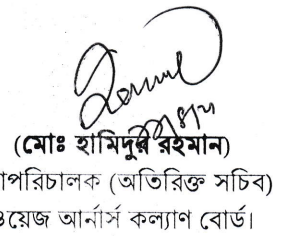 (মোঃ হামিদুর রহমান)
াপরিচালক (অতিরিক্ত সচিব)
ওয়েজ আর্নার্স কল্যাণ বোর্ড।